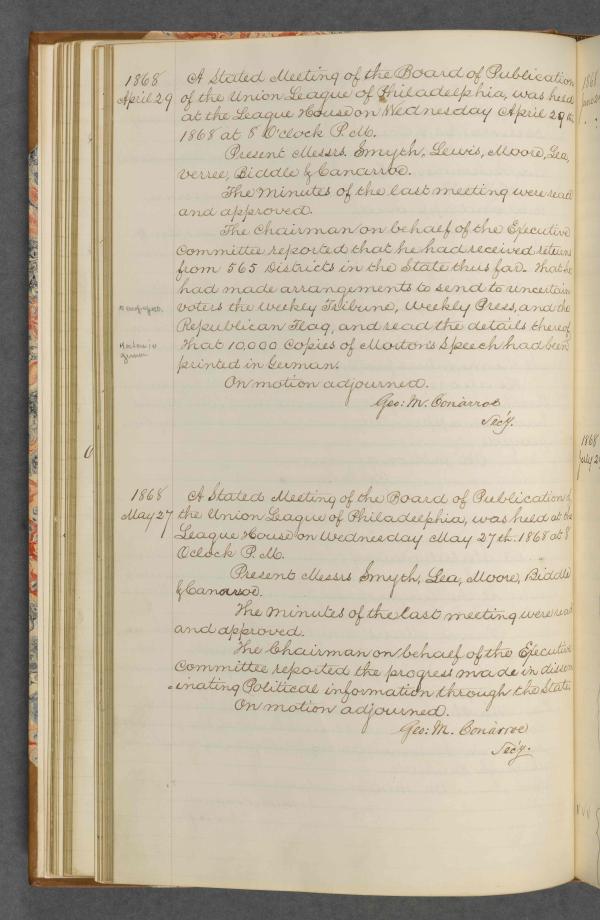 1868
April 29
A Stated Meeting of the Board of Publication
of the Union League of Philadelphia, was held
at the League House on Wednesday April 29th
1868 at 8 O'clock P.M.
Present Messrs. Smyth, Lewis, Moore, Lea,
verree, Biddle & Conarroe.
The Minutes of the last meeting were read
and approved.
The Chairman on behalf of the Executive
Committee reported that he had received returns
from 565 Districts in the State thus far. That he
had made arrangements to send to uncertain
voters the Weekly Tribune, Weekly Press, and the
Republican Flag, and read the details thereof
That 10,000 Copies of Morton's Speech had been
printed in German.
On motion adjourned.
Geo: M. Conarroe
Sec'y.
1868
May 27
A Stated Meeting of the Board of Publication of
the Union League of Philadelphia, was held at the
League House on Wednesday May 27th. 1868 at 8
Oclock P.M.
Present Messrs Smyth, Lea, Moore, Biddle
& Conarroe.
The Minutes of the last meeting were read
and approved.
The Chairman on behalf of the Executive
Committee reported the progress made in dissem
-inating Political information through the State.
On motion adjourned.
Geo: M. Conarroe
Sec'y.
1868